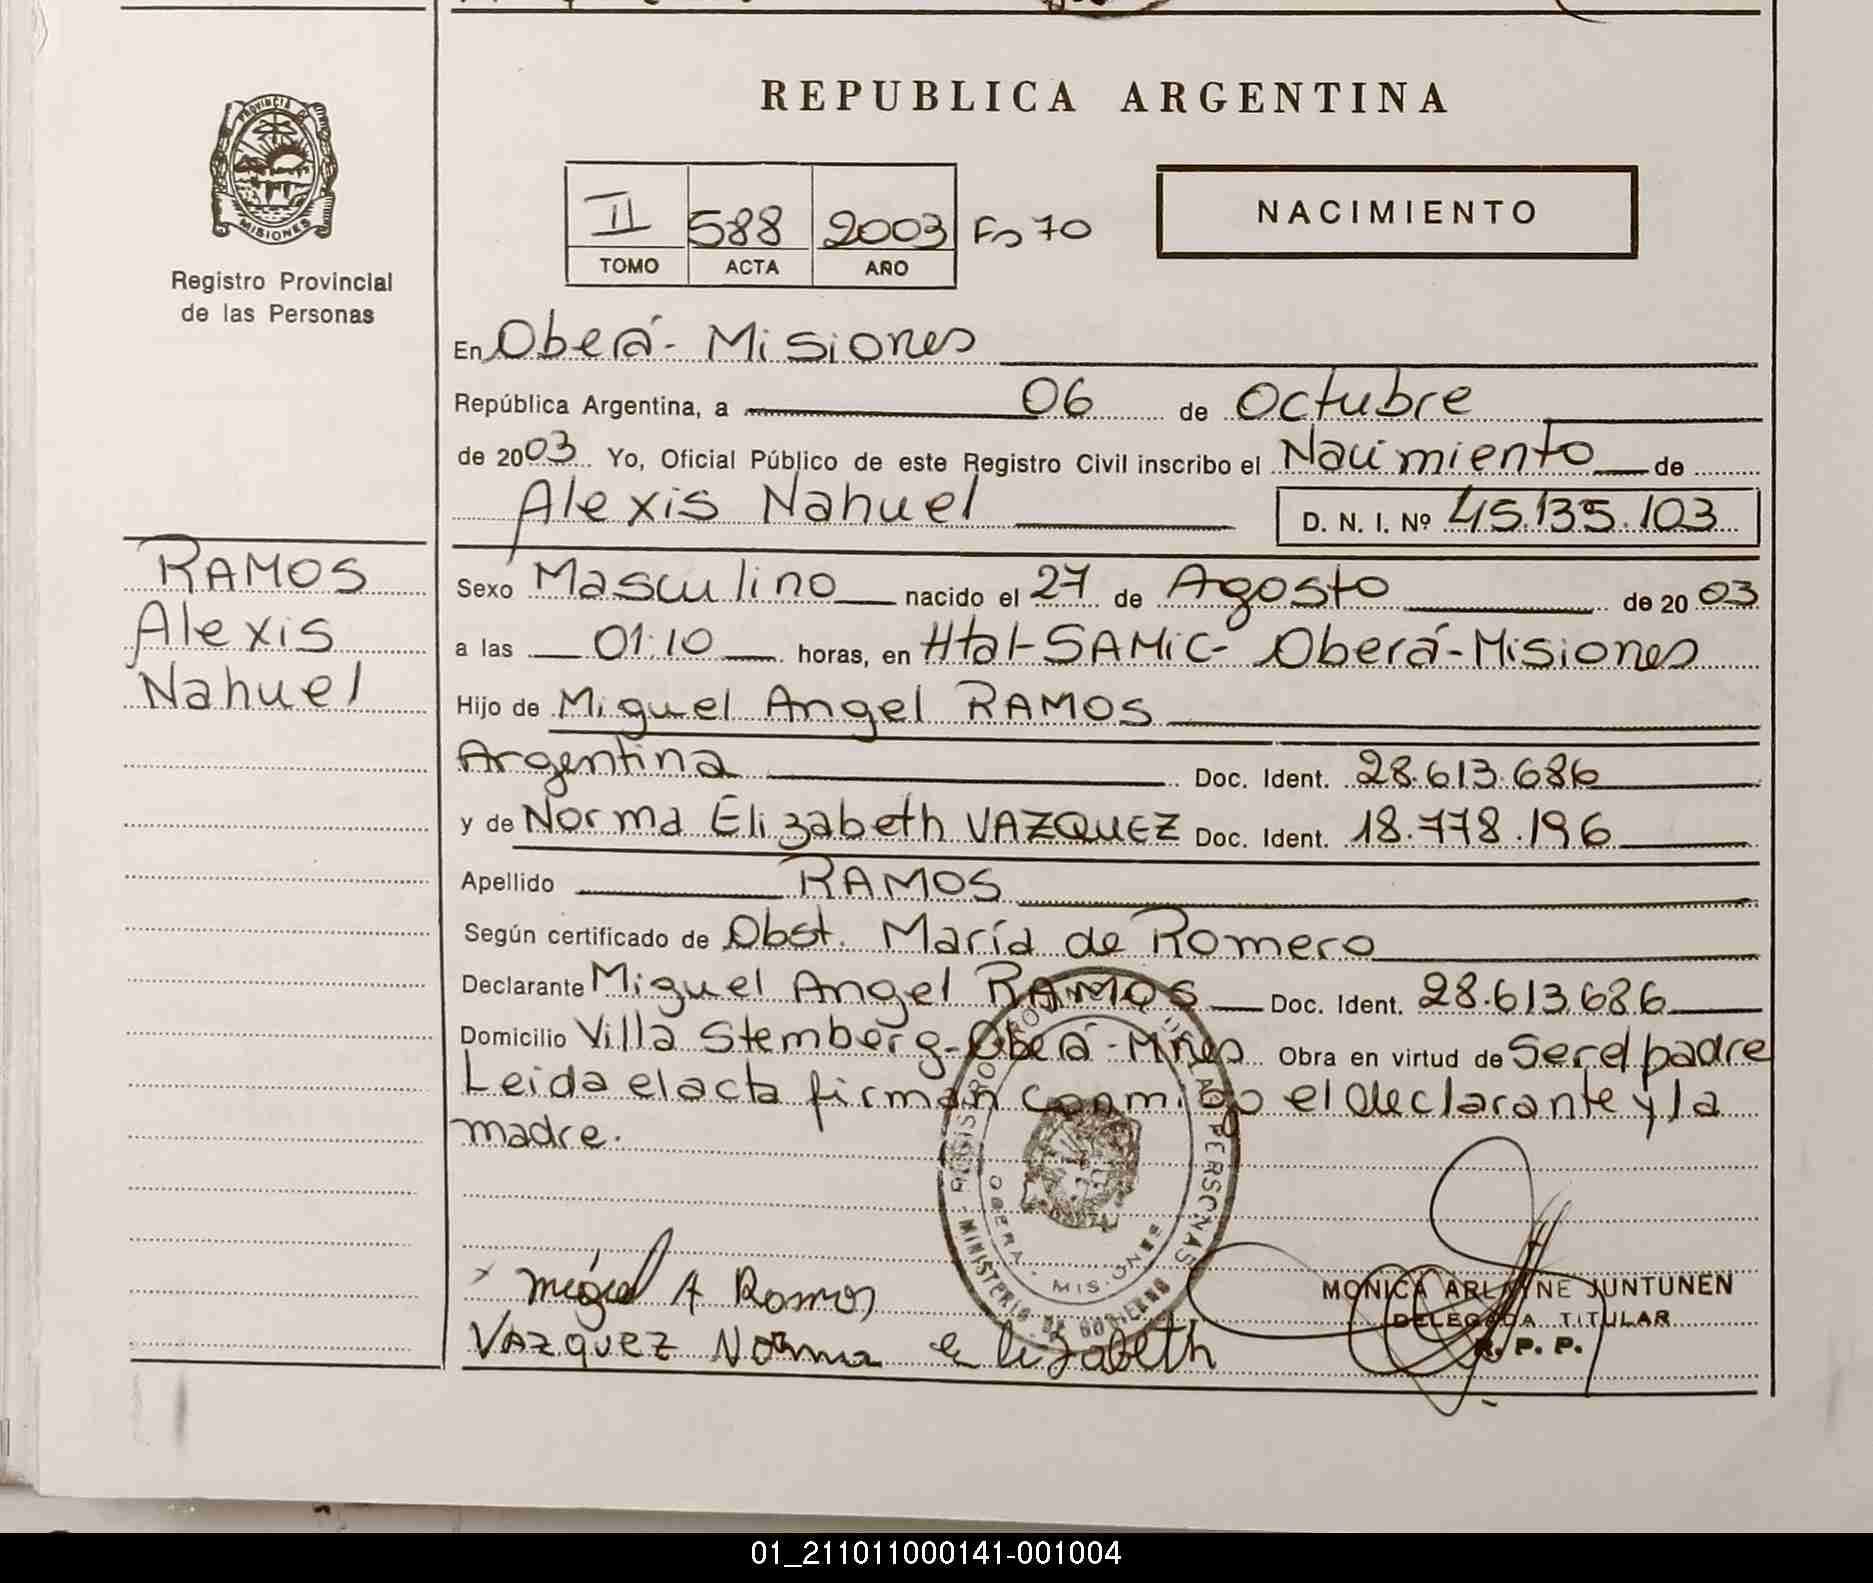 REPUBLICA ARGENTINA
PROVINCIA DE
MISIONES
Registro Provincial
de las Personas
II 588 2003 Fo 70
TOMO ACTA AÑO
NACIMIENTO
En Oberá - Misiones
República Argentina, a 06 de Octubre
de 2003 Yo, Oficial Público de este Registro Civil inscribo el Nacimiento de
Alexis Nahuel D. N. I. Nº 45.135.103
RAMOS
Alexis
Nahuel
Sexo Masculino nacido el 27 de Agosto de 2003
a las 01:10 horas, en Htal-SAMIC- Oberá-Misiones
Hijo de Miguel Angel RAMOS
Argentina Doc. Ident. 28.613.686
y de Norma Elizabeth VAZQUEZ Doc. Ident. 18.778.196
Apellido RAMOS
Según certificado de Obst. María de Romero
Declarante Miguel Angel RAMOS Doc. Ident. 28.613.686
Domicilio Villa Stemberg-Oberá-Mnes Obra en virtud de Ser el padre
Leida el acta firman conmigo el declarante y la
madre.
REGISTRO PROV DE LAS PERSONAS
- MINISTERIO DE GOBIERNO
OBERA - MISIONES
x Miguel A Ramos
VAZQUEZ Norma Elizabeth
MONICA ARLAYNE JUNTUNEN
DELEGADA TITULAR
R. P. P.
01_211011000141-001004